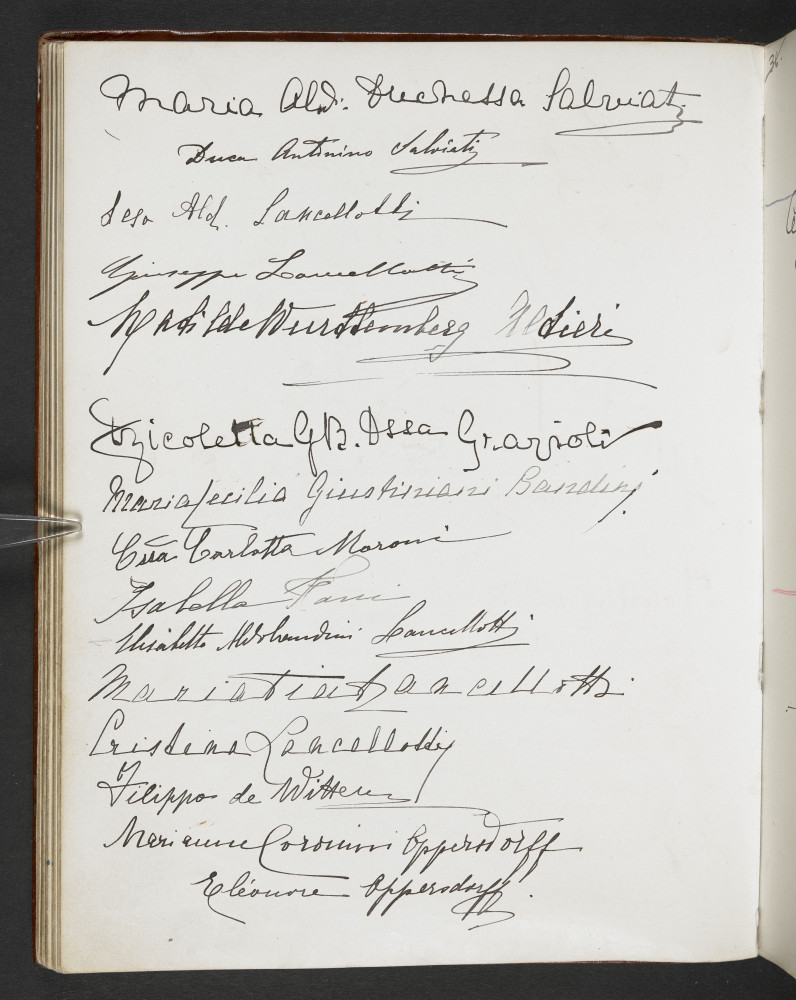 Maria Ald. Duchessa Salviati
Duca Antonino Salviati
Ald. Lancellotti
Giuseppe Lancellotti
Matilde Wurttemberg Altieri
Nicoletta G B. Dssa Grazioli
Maria Cecilia Giustiniani Bandini
Cssa Carlotta Moroni
Isabella
Elisabetta Aldobrandini Lancellotti
Maria Pia Lancellotti
Cristina Lancellotti
Filippo de Witten
Marianne Coronini Oppersdorff
Eléonore Oppersdorff.
36.